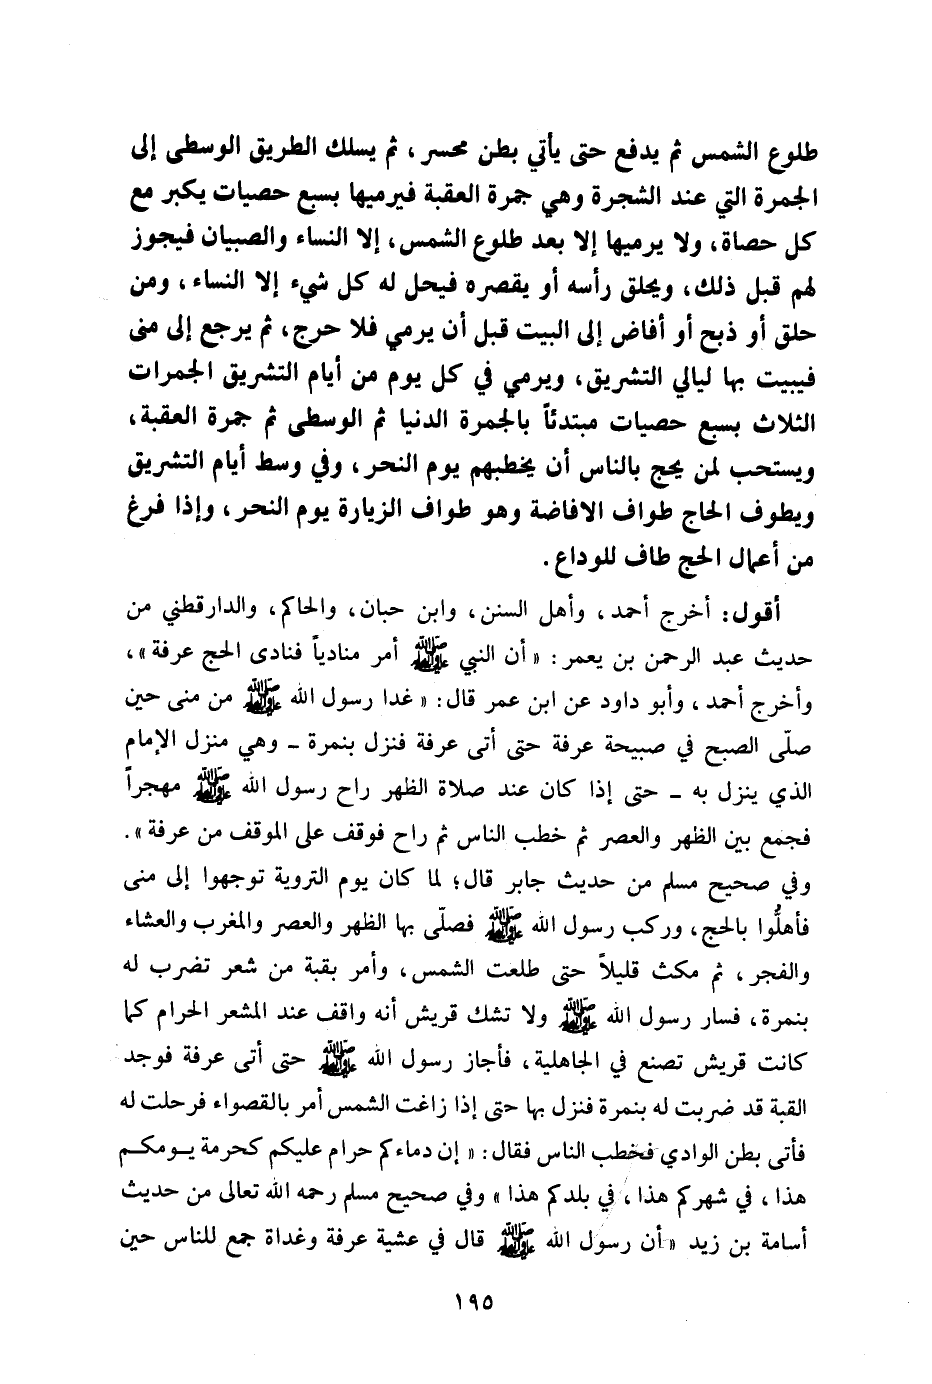 طلوع الشمس ثم يدفع حتى يأتي بطن محسر ، ثم يسلك الطريق الوسطى إلى
الجمرة التي عند الشجرة وهي جمرة العقبة فيرميها بسبع حصيات يكبر مع
كل حصاة ، ولا يرميها إلا بعد طلوع الشمس ، إلا النساء والصبيان فيجوز
لهم قبل ذلك ، ويحلق رأسه أو يقصره فيحل له كل شيء إلا النساء ، ومن
حلق أو ذبح أو أفاض إلى البيت قبل أن يرمي فلا حرج ، ثم يرجع إلى منى
فيبيت بها ليالي التشريق ، ويرمي في كل يوم من أيام التشريق الجمرات
الثلاث بسبع حصيات مبتدئاً بالجمرة الدنيا ثم الوسطى ثم جمرة العقبة ،
ويستحب لمن يحج بالناس أن يخطبهم يوم النحر ، وفي وسط أيام التشريق
ويطوف الحاج طواف الافاضة وهو طواف الزيارة يوم النحر ، وإذا فرغ
من أعمال الحج طاف للوداع .
أقول : أخرج أحمد ، وأهل السنن ، وابن حبان ، والحاكم ، والدارقطني من
حديث عبد الرحمن بن يعمر : « أن النبي ﷺ أمر منادياً فنادى الحج عرفة » ،
وأخرج أحمد ، وأبو داود عن ابن عمر قال : « غدا رسول الله ﷺ من منى حين
صلّى الصبح في صبيحة عرفة حتى أتى عرفة فنزل بنمرة ـ وهي منزل الإمام
الذي ينزل به ـ حتى إذا كان عند صلاة الظهر راح رسول الله ﷺ مهجراً
فجمع بين الظهر والعصر ثم خطب الناس ثم راح فوقف على الموقف من عرفة » .
وفي صحيح مسلم من حديث جابر قال ؛ لما كان يوم التروية توجهوا إلى منى
فأهلُّوا بالحج ، وركب رسول الله ﷺ فصلّى بها الظهر والعصر والمغرب والعشاء
والفجر ، ثم مكث قليلاً حتى طلعت الشمس ، وأمر بقبة من شعر تضرب له
بنمرة ، فسار رسول الله ﷺ ولا تشك قريش أنه واقف عند المشعر الحرام كما
كانت قريش تصنع في الجاهلية ، فأجاز رسول الله ﷺ حتى أتى عرفة فوجد
القبة قد ضربت له بنمرة فنزل بها حتى إذا زاغت الشمس أمر بالقصواء فرحلت له
فأتى بطن الوادي فخطب الناس فقال : « إن دماءكم حرام عليكم كحرمة يومكم
هذا ، في شهركم هذا ، في بلدكم هذا » وفي صحيح مسلم رحمه الله تعالى من حديث
أسامة بن زيد « أن رسول الله ﷺ قال في عشية عرفة وغداة جمع للناس حين
١٩٥